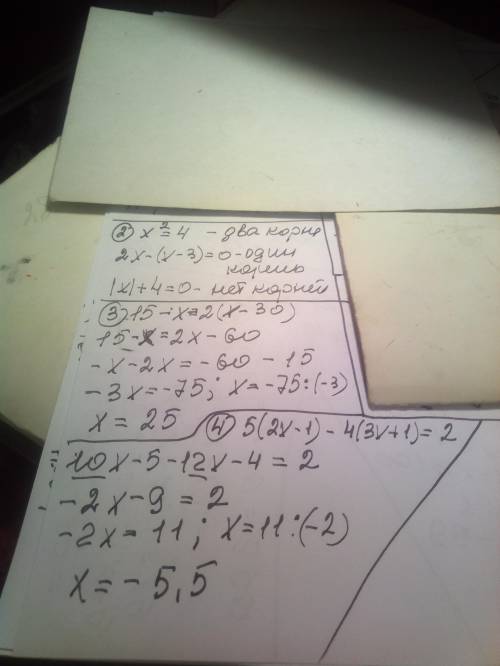 ② x² = 4 - два корня
2x-(x-3)=0-один
корень
|x|+4=0- нет корней
③ 15-x=2(x-30)
15-x=2x-60
-x-2x=-60-15
-3x=-75; x=-75:(-3)
x=25
④ 5(2x-1)-4(3x+1)=2
10x-5-12x-4=2
-2x-9=2
-2x=11; x=11:(-2)
x=-5,5